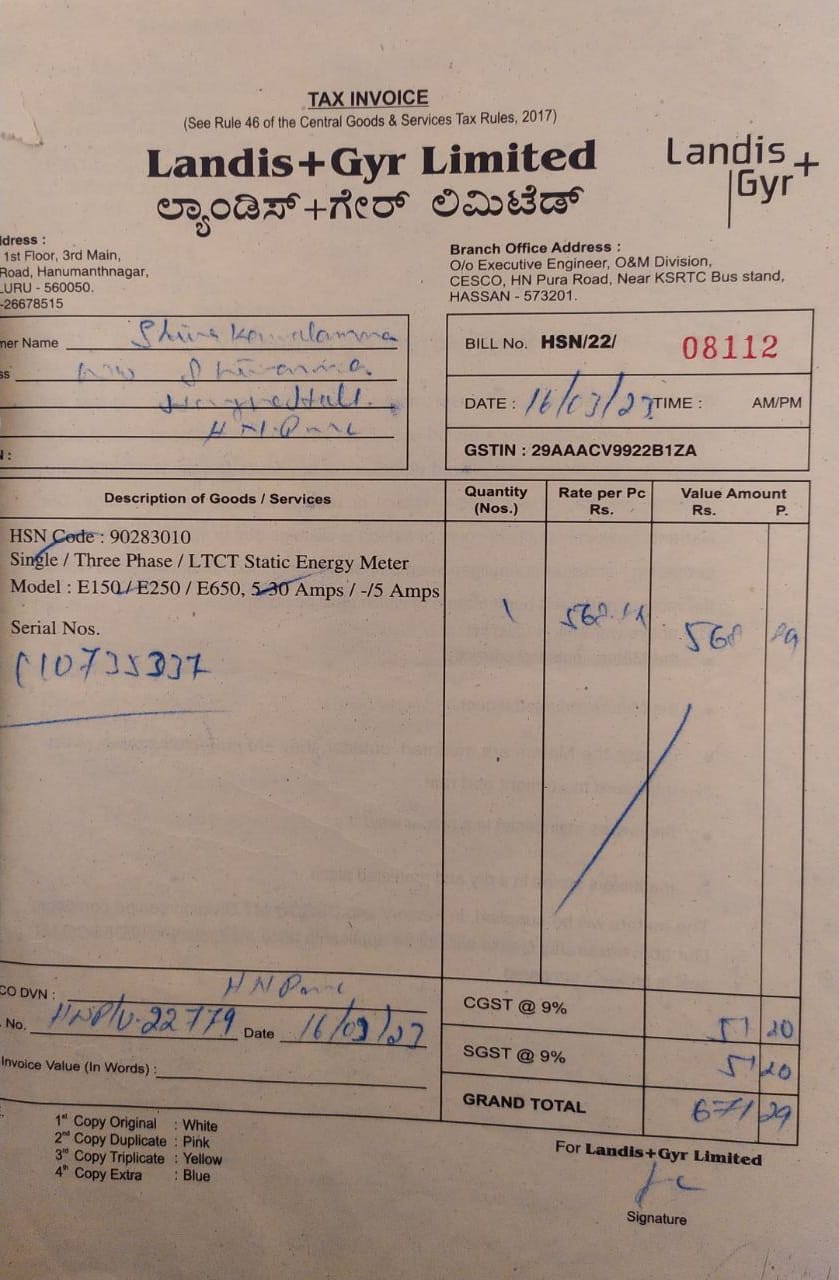 TAX INVOICE
(See Rule 46 of the Central Goods & Services Tax Rules, 2017)
Landis+Gyr Limited
ಲ್ಯಾಂಡಿಸ್+ಗೇರ್ ಲಿಮಿಟೆಡ್
Landis+
Gyr
dress :
1st Floor, 3rd Main,
Road, Hanumanthnagar,
URU - 560050.
-26678515
Branch Office Address :
O/o Executive Engineer, O&M Division,
CESCO, HN Pura Road, Near KSRTC Bus stand,
HASSAN - 573201.
ner Name
ss
H N Pura
BILL No. HSN/22/ 08112
DATE : 16/03/23 TIME : AM/PM
GSTIN : 29AAACV9922B1ZA
Description of Goods / Services Quantity (Nos.) Rate per Pc Rs. Value Amount Rs. P.
HSN Code : 90283010
Single / Three Phase / LTCT Static Energy Meter
Model : E150 / E250 / E650, 5-30 Amps / -/5 Amps
1 568 568 89
Serial Nos.
10735337
CO DVN : H N Pura
No. 22779 Date 16/03/23
Invoice Value (In Words) :
CGST @ 9% 51 20
SGST @ 9% 51 20
GRAND TOTAL 671 29
1st Copy Original : White
2nd Copy Duplicate : Pink
3rd Copy Triplicate : Yellow
4th Copy Extra : Blue
For Landis+Gyr Limited
Signature